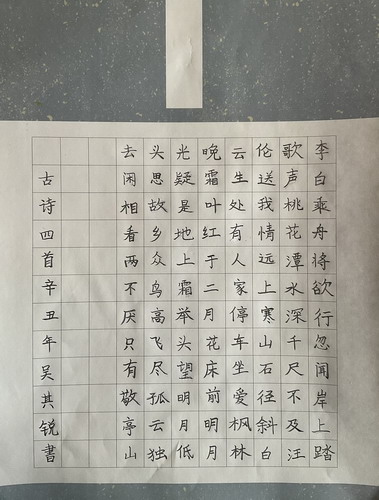 李白乘舟将欲行忽闻岸上踏
歌声桃花潭水深千尺不及汪
伦送我情远上寒山石径斜白
云生处有人家停车坐爱枫林
晚霜叶红于二月花床前明月
光疑是地上霜举头望明月低
头思故乡众鸟高飞尽孤云独
去闲相看两不厌只有敬亭山
古诗四首辛丑年吴其锐書